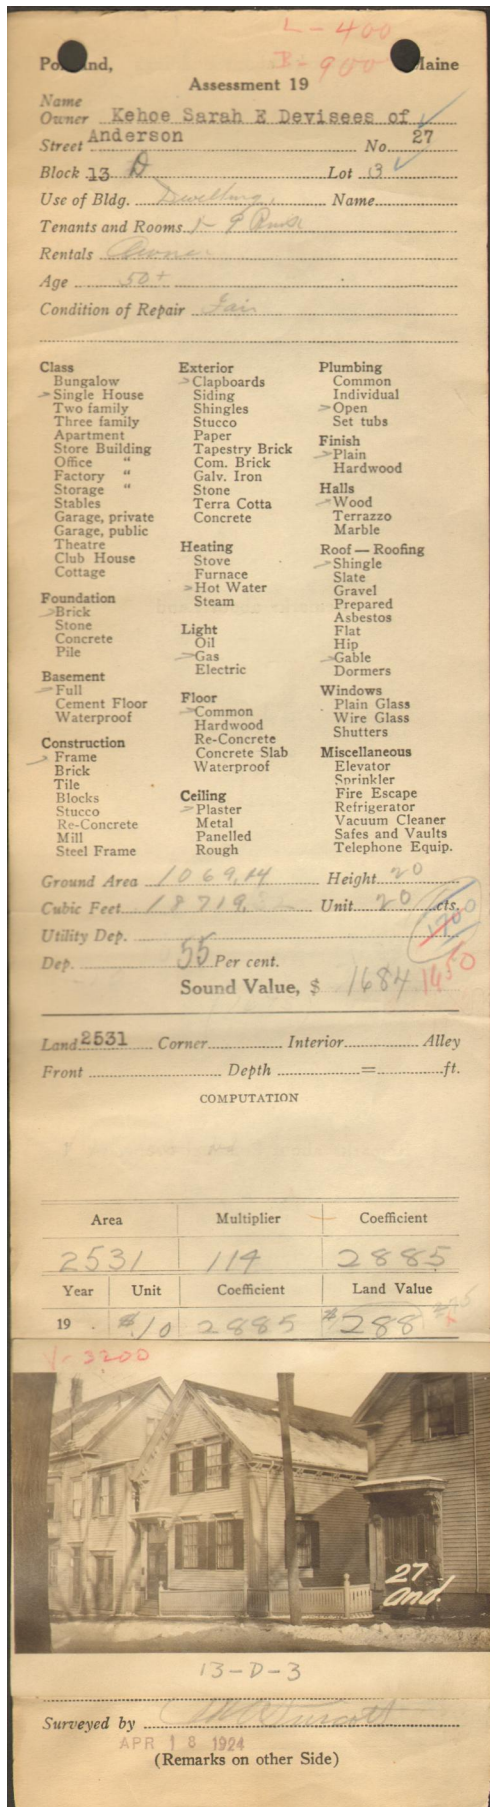 L - 400
B - 900
Portland, Maine
Assessment 19
Name
Owner Kehoe Sarah E Devisees of
Street Anderson No. 27
Block 13 D Lot 3
Use of Bldg. Dwelling. Name
Tenants and Rooms 1 - 9 Rooms
Rentals Owner
Age 50+
Condition of Repair Fair
Class
Bungalow
Single House
Two family
Three family
Apartment
Store Building
Office "
Factory "
Storage "
Stables
Garage, private
Garage, public
Theatre
Club House
Cottage
Foundation
Brick
Stone
Concrete
Pile
Basement
Full
Cement Floor
Waterproof
Construction
Frame
Brick
Tile
Blocks
Stucco
Re-Concrete
Mill
Steel Frame
Exterior
Clapboards
Siding
Shingles
Stucco
Paper
Tapestry Brick
Com. Brick
Galv. Iron
Stone
Terra Cotta
Concrete
Heating
Stove
Furnace
Hot Water
Steam
Light
Oil
Gas
Electric
Floor
Common
Hardwood
Re-Concrete
Concrete Slab
Waterproof
Ceiling
Plaster
Metal
Panelled
Rough
Plumbing
Common
Individual
Open
Set tubs
Finish
Plain
Hardwood
Halls
Wood
Terrazzo
Marble
Roof — Roofing
Shingle
Slate
Gravel
Prepared
Asbestos
Flat
Hip
Gable
Dormers
Windows
Plain Glass
Wire Glass
Shutters
Miscellaneous
Elevator
Sprinkler
Fire Escape
Refrigerator
Vacuum Cleaner
Safes and Vaults
Telephone Equip.
Ground Area 1069.14 Height 20
Cubic Feet 18719. Unit 20 cts.
Utility Dep. 1700
Dep. 55 Per cent.
Sound Value, $ 1684 1650
Land 2531 Corner Interior Alley
Front Depth = ft.
COMPUTATION
Area Multiplier Coefficient
2531 114 2885
Year Unit Coefficient Land Value
19 $.10 2885 $288
V - 3200
27
And.
13-D-3
Surveyed by
APR 18 1924
(Remarks on other Side)